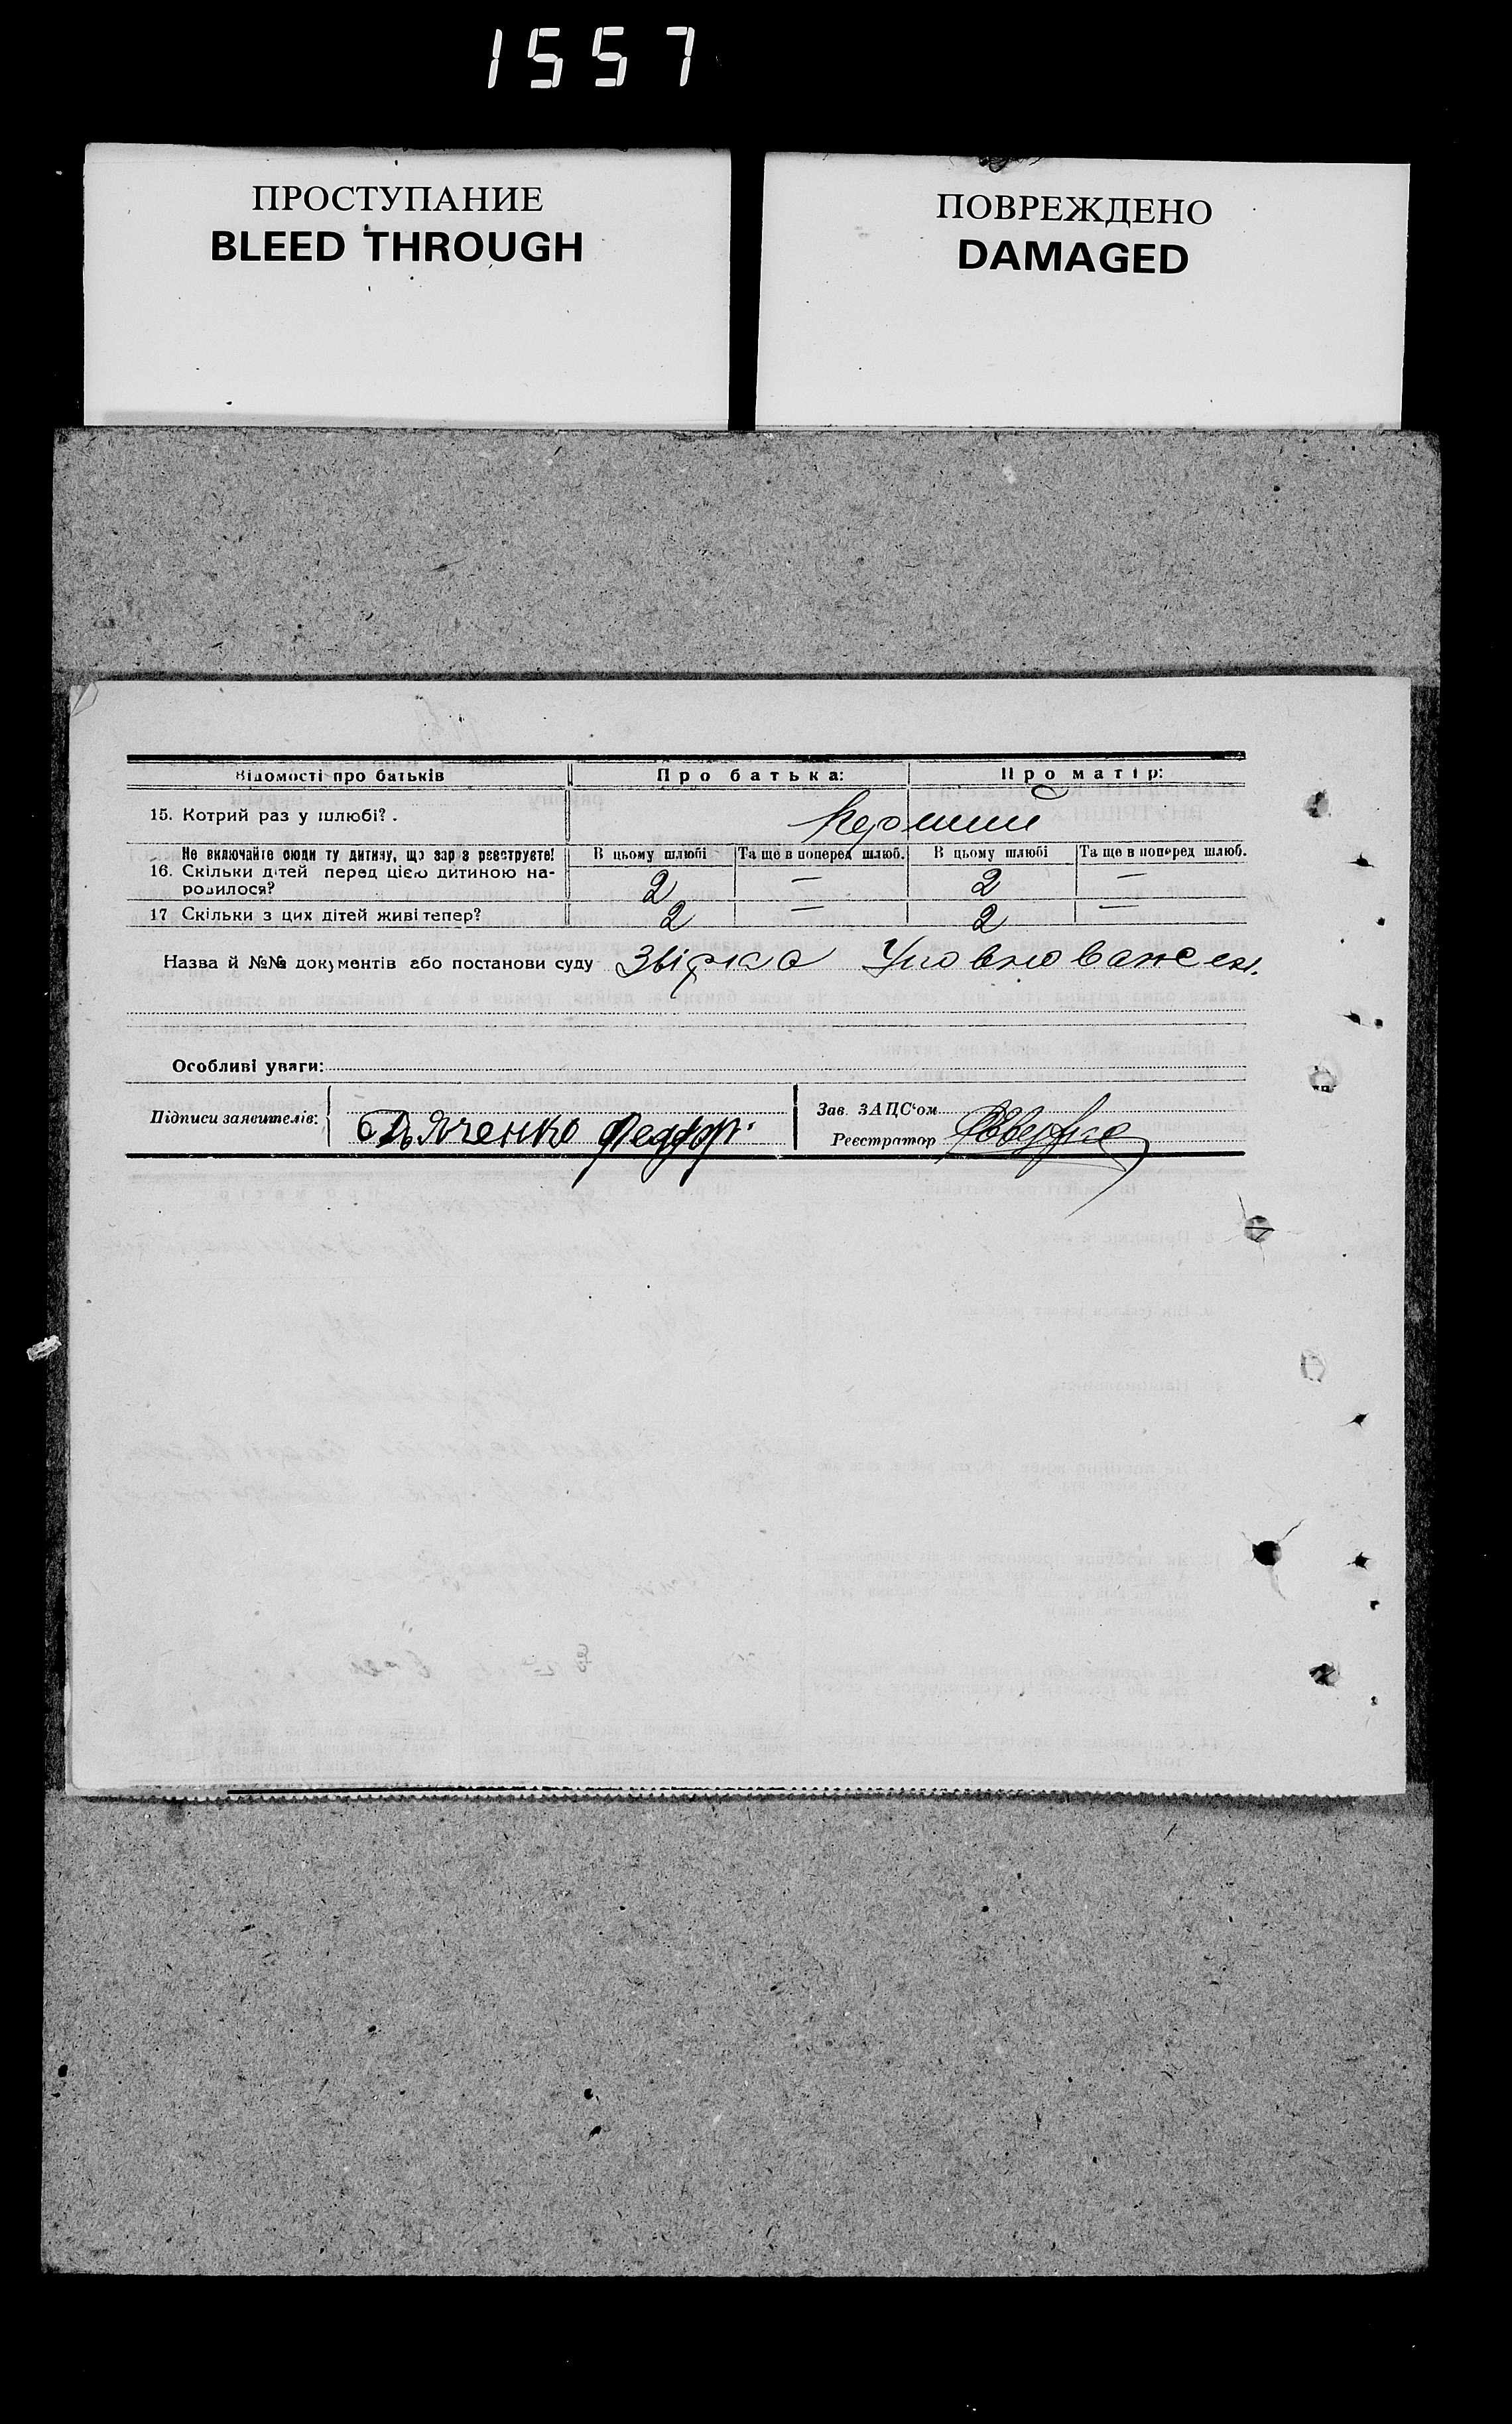 1557
ПРОСТУПАНИЕ
BLEED THROUGH
ПОВРЕЖДЕНО
DAMAGED
Відомості про батьків Про батька: Про матір:
15. Котрий раз у шлюбі?. Перший
Не включайте сюди ту дитину, що зараз реєструєте! В цьому шлюбі Та ще в поперед шлюб. В цьому шлюбі Та ще в поперед шлюб.
16. Скільки дітей перед цією дитиною на-
родилося? 2 — 2 —
17 Скільки з цих дітей живі тепер? 2 — 2 —
Назва й №№ документів або постанови суду Звірка Уповноважен.
Особливі уваги:
Підписи заявителів: Дяченко Федор. Зав. ЗАЦС'ом
Реєстратор